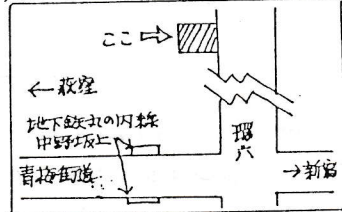 ここ⇒
←荻窪
地下鉄丸の内線
中野坂上
環六
青梅街道
→新宿